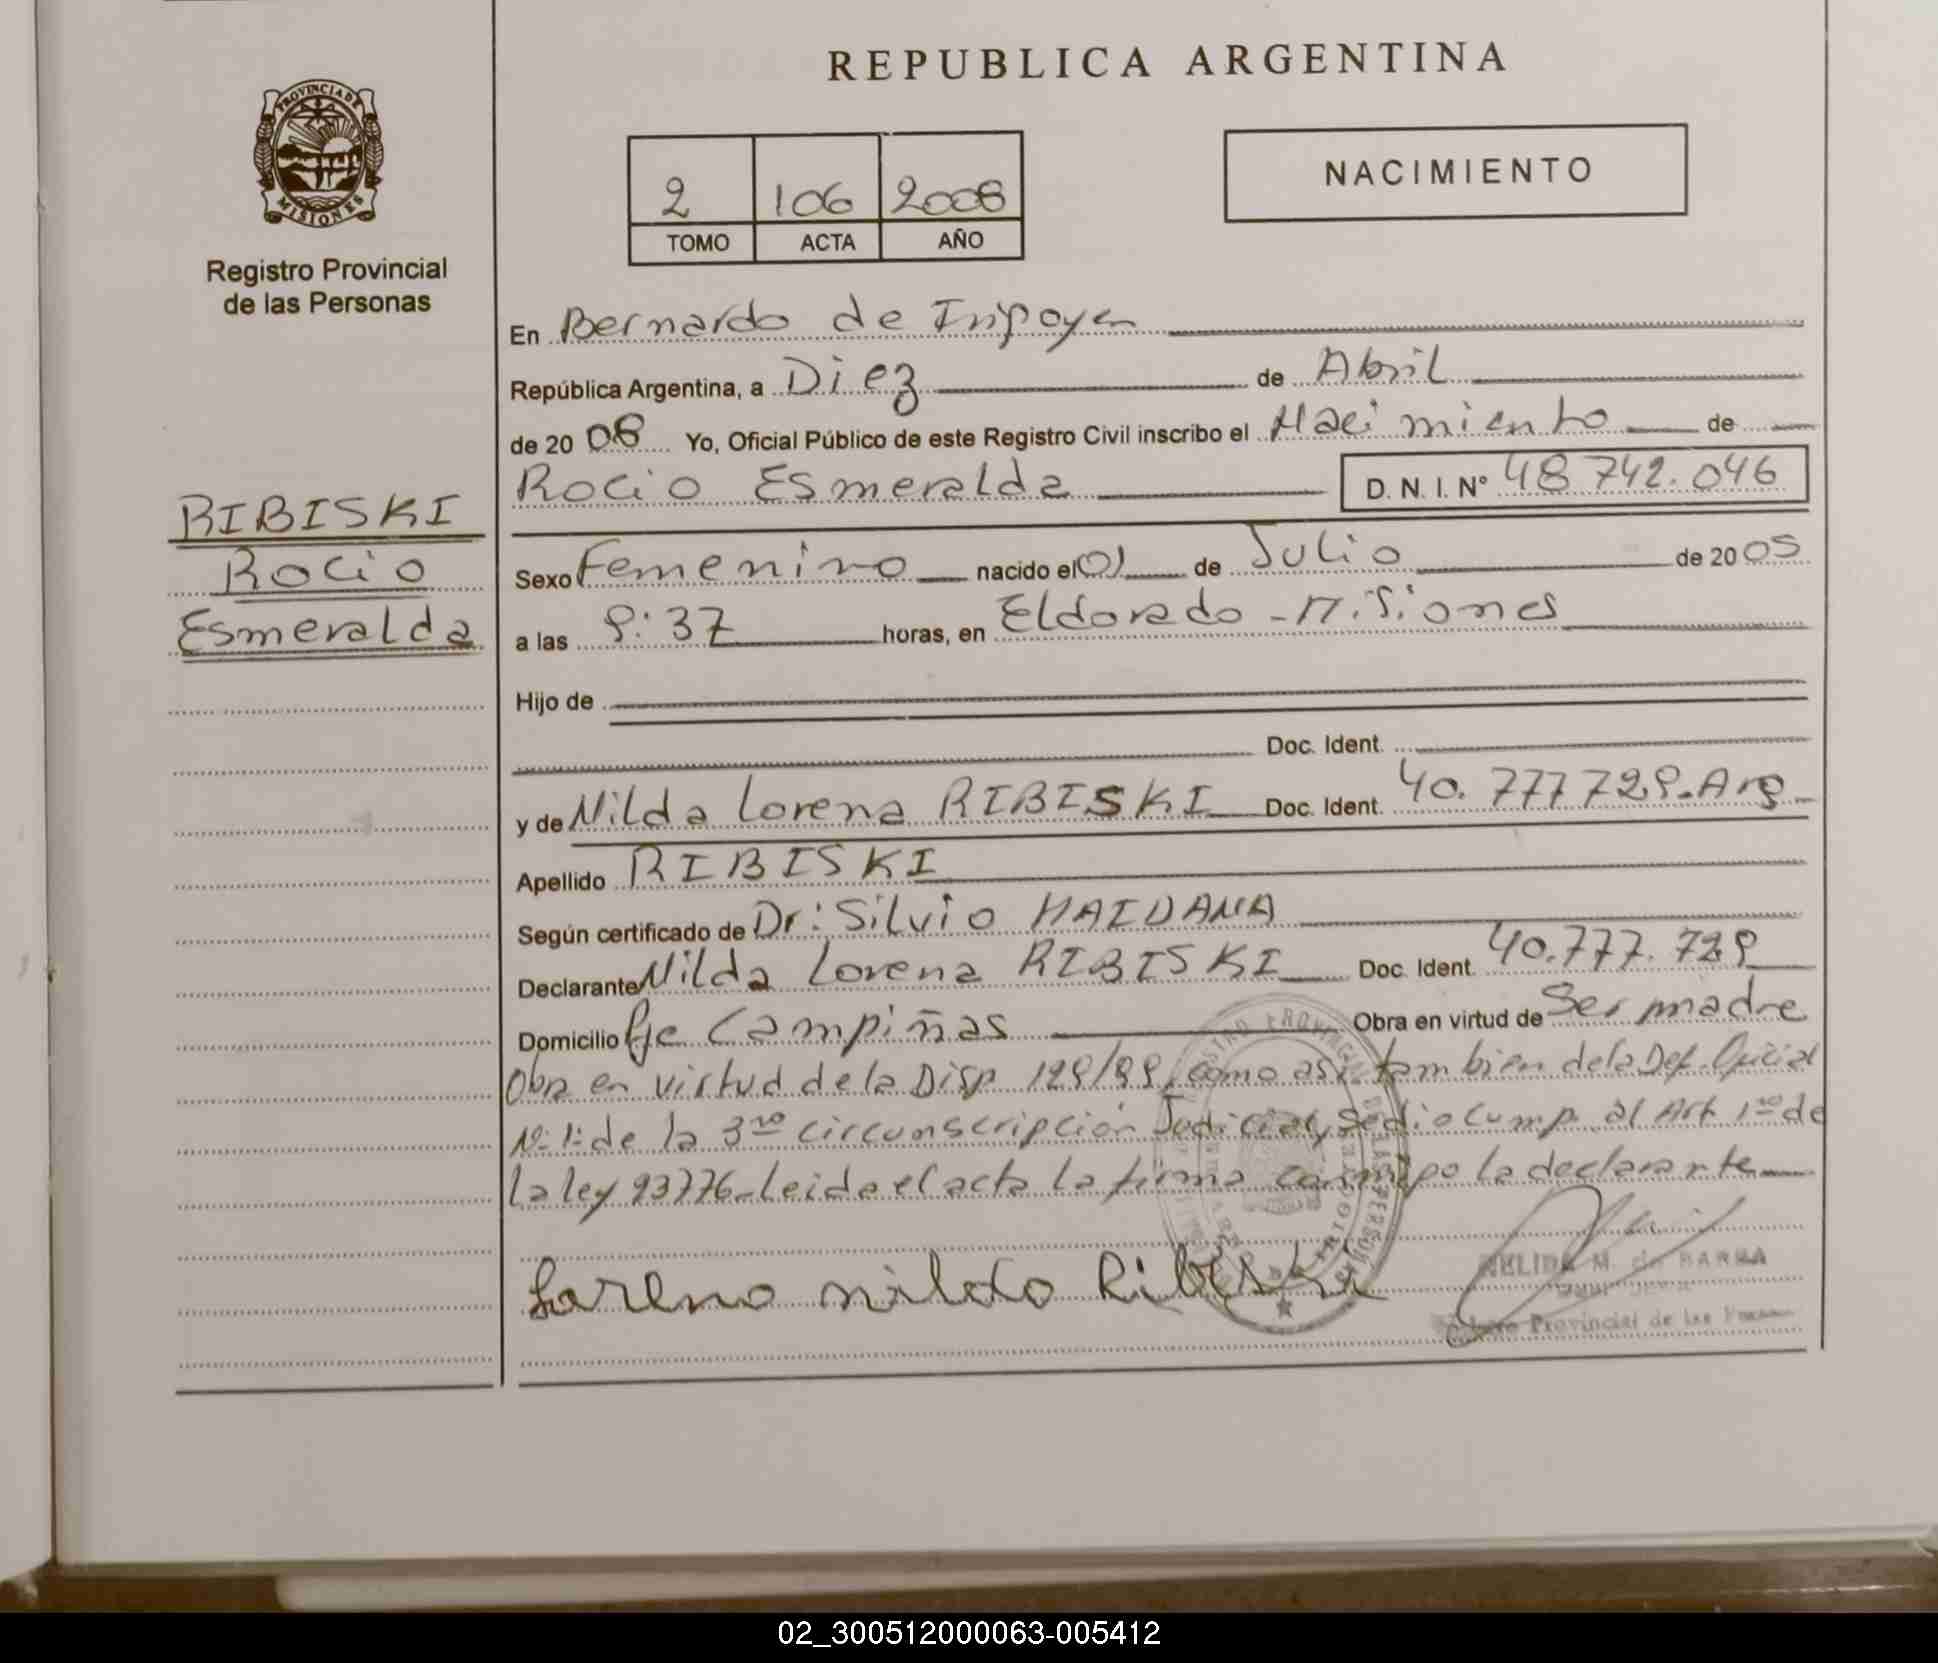 REPUBLICA ARGENTINA
PROVINCIA DE
MISIONES
Registro Provincial
de las Personas
2 106 2008
TOMO ACTA AÑO
NACIMIENTO
En Bernardo de Irigoyen
República Argentina, a Diez de Abril
de 20 08 Yo, Oficial Público de este Registro Civil inscribo el Nacimiento de
Rocio Esmeralda D. N. I. Nº 48 742.046
RIBISKI
Rocio
Esmeralda
Sexo Femenino nacido el 01 de Julio de 20 05
a las 9:37 horas, en Eldorado - Misiones
Hijo de
Doc. Ident.
y de Nilda Lorena RIBISKI Doc. Ident. 40.777729.Arg
Apellido RIBISKI
Según certificado de Dr: Silvio MAIDANA
Declarante Nilda Lorena RIBISKI Doc. Ident. 40.777.729
Domicilio Pje Campiñas Obra en virtud de Ser madre
Obra en virtud de la Disp 129/99, como asi tambien de la Def. Oficial
Nº 1 de la 3ra circunscripción Judicial, se dio cump. al Art 1ro de
la ley 23776_Leida el acta la firma conmigo la declarante
Loreno nildo Ribiski
NELIDA M. de BARRA
Provincial de las
02_300512000063-005412